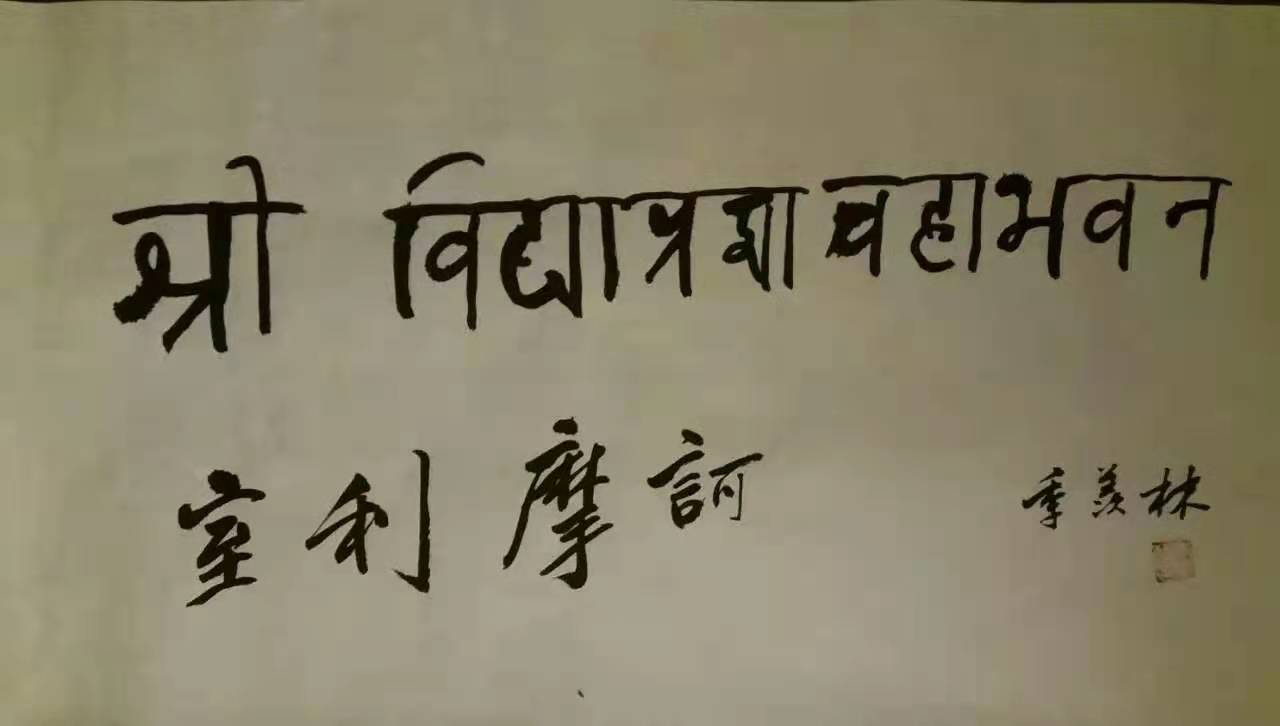 श्री विद्याप्रज्ञा महाभवन
室利摩訶 季羡林